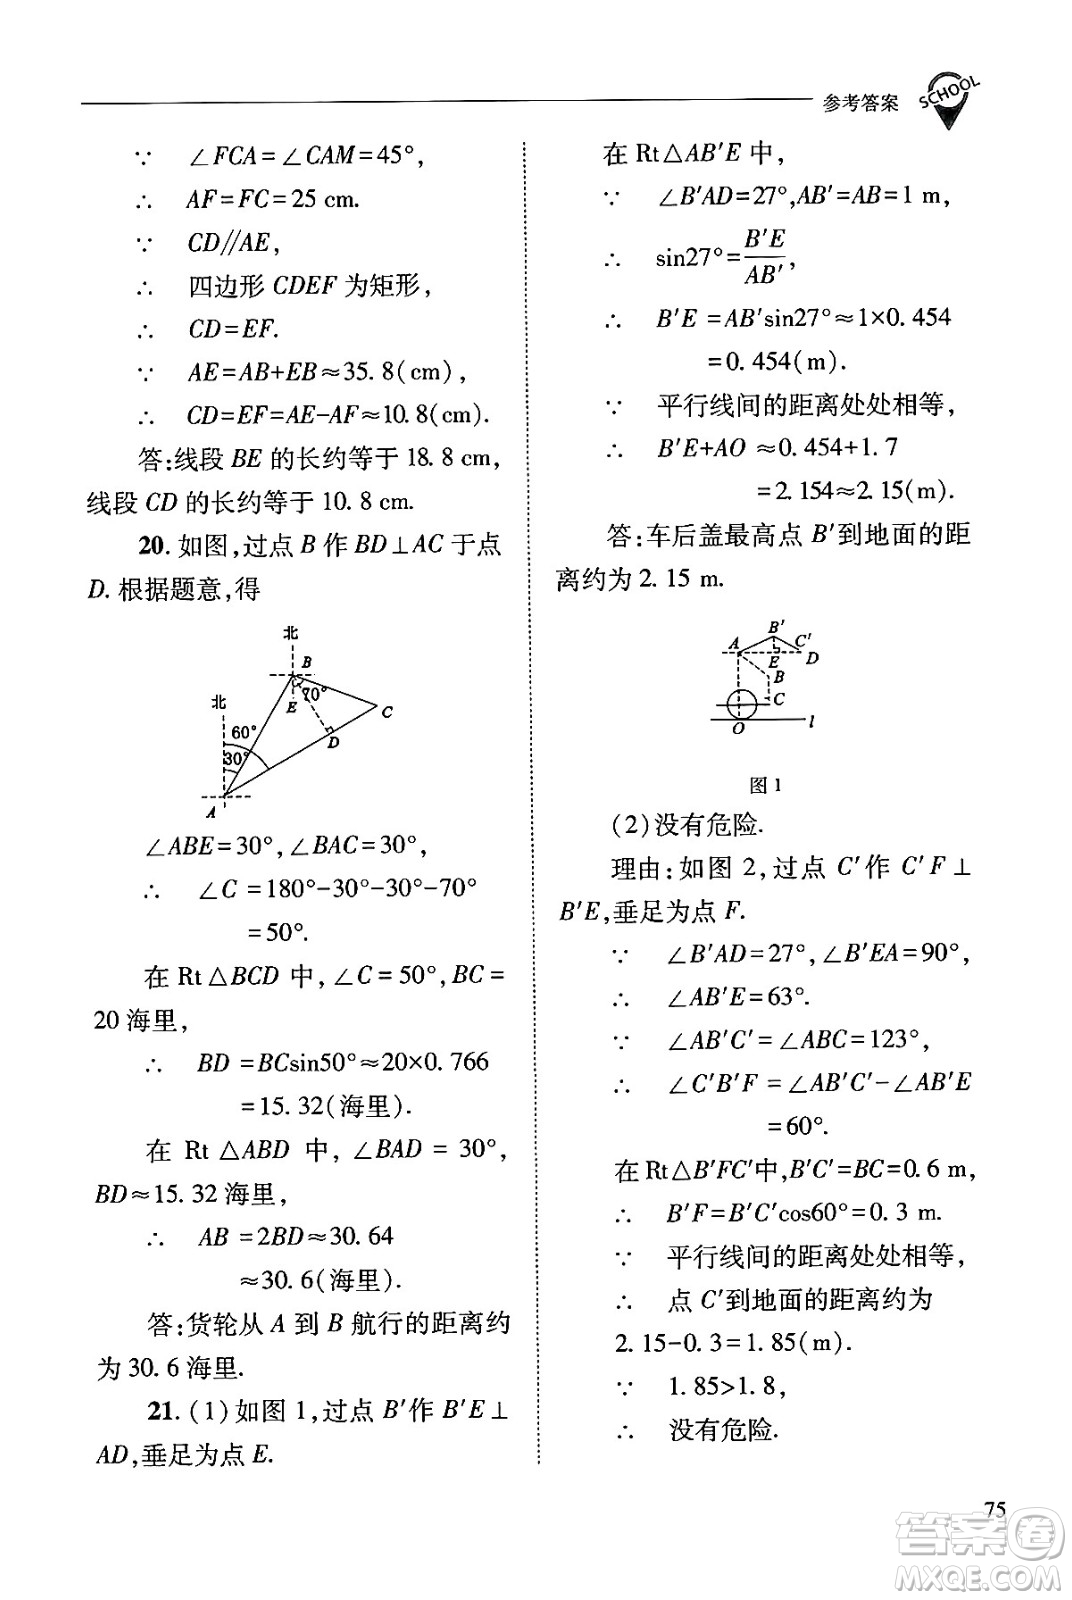 参考答案
SCHOOL
∵ ∠FCA=∠CAM=45°,
∴ AF=FC=25 cm.
∵ CD∥AE,
∴ 四边形 CDEF 为矩形,
∴ CD=EF.
∵ AE=AB+EB≈35.8(cm),
∴ CD=EF=AE-AF≈10.8(cm).
答:线段 BE 的长约等于 18.8 cm,
线段 CD 的长约等于 10.8 cm.
20. 如图,过点 B 作 BD⊥AC 于点
D. 根据题意,得
北
B
北
E
70°
C
60°
D
30°
A
∠ABE=30°,∠BAC=30°,
∴ ∠C =180°-30°-30°-70°
=50°.
在 Rt△BCD 中,∠C=50°,BC=
20 海里,
∴ BD =BCsin50°≈20×0.766
=15.32(海里).
在 Rt △ABD 中,∠BAD = 30°,
BD≈15.32 海里,
∴ AB =2BD≈30.64
≈30.6(海里).
答:货轮从 A 到 B 航行的距离约
为 30.6 海里.
21. (1)如图 1,过点 B′作 B′E⊥
AD,垂足为点 E.
在 Rt△AB′E 中,
∵ ∠B′AD=27°,AB′=AB=1 m,
∴ sin27°=B′E/AB′,
∴ B′E =AB′sin27°≈1×0.454
=0.454(m).
∵ 平行线间的距离处处相等,
∴ B′E+AO ≈0.454+1.7
=2.154≈2.15(m).
答:车后盖最高点 B′到地面的距
离约为 2.15 m.
B′
A
C′
E
D
B
C
O
l
图 1
(2)没有危险.
理由:如图 2,过点 C′作 C′F⊥
B′E,垂足为点 F.
∵ ∠B′AD=27°,∠B′EA=90°,
∴ ∠AB′E=63°.
∵ ∠AB′C′=∠ABC=123°,
∴ ∠C′B′F =∠AB′C′-∠AB′E
=60°.
在Rt△B′FC′中,B′C′=BC=0.6 m,
∴ B′F=B′C′cos60°=0.3 m.
∵ 平行线间的距离处处相等,
∴ 点 C′到地面的距离约为
2.15-0.3=1.85(m).
∵ 1.85>1.8,
∴ 没有危险.
75
答案圈
MXQE.COM